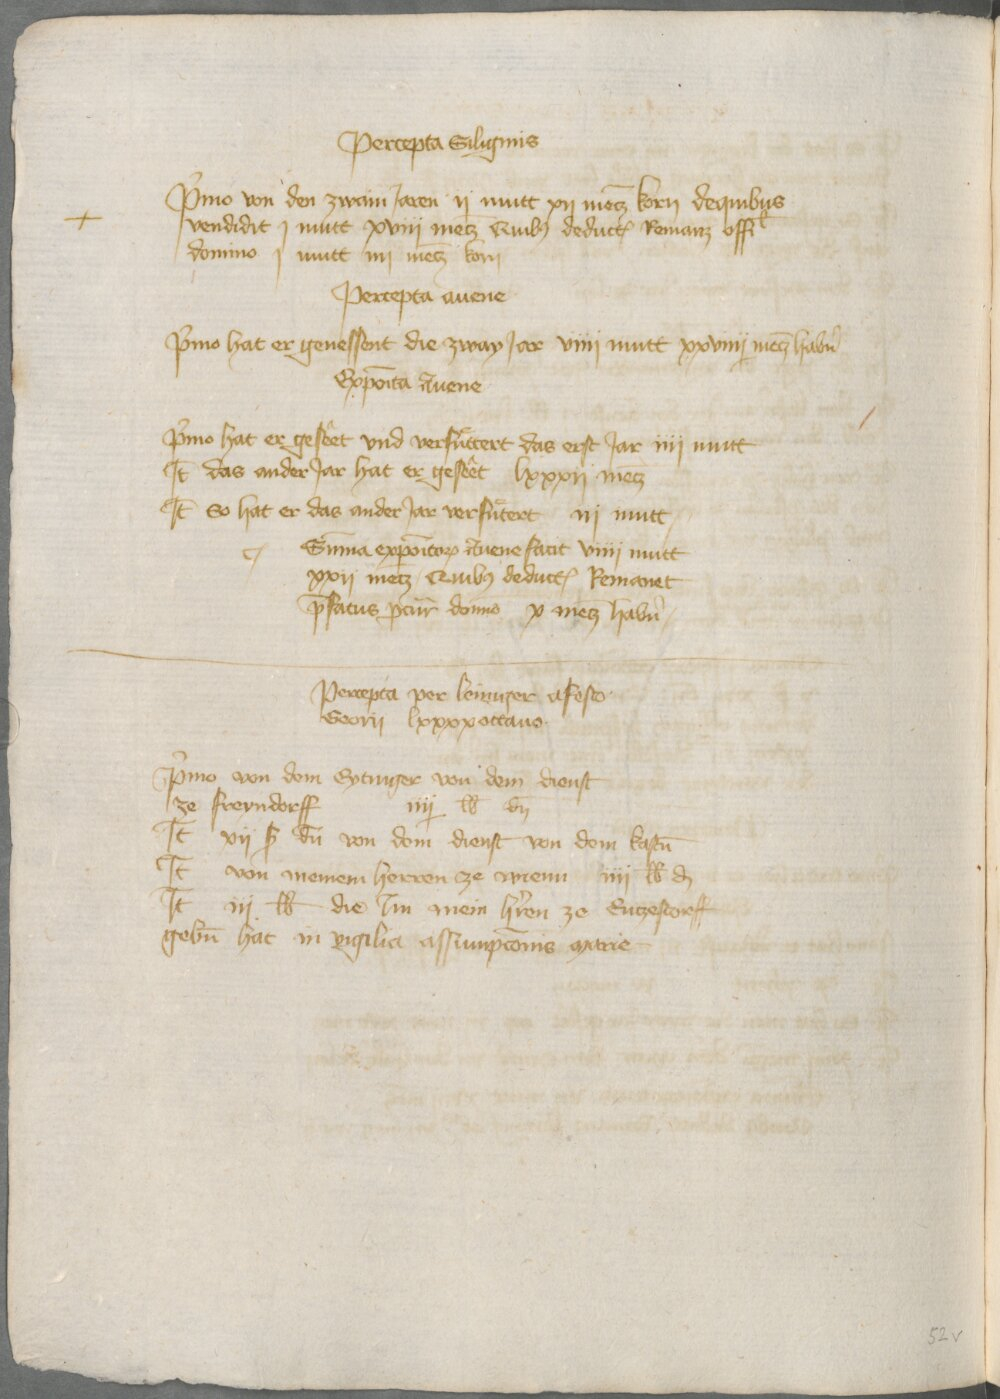 Percepta Siliginis
P̄mo von den zwain Jaren ij mutt xij mecz̄ korn dequibus
vendidit j mutt xviij mecz̄ Quibꝫ deduct̄ Remanz offi̅l
domino j mutt iiij mecz̄ korn
Percepta auene
P̄mo hat er genessent die zway Jar viiij mutt xxviiij mecz̄ habn̄
Expoīta Auene
P̄mo hat er geseet vnd verfuttert das erst Jar iiij mutt
It̄ das ander Jar hat er geseet lxxxij mecz̄
It̄ So hat er das ander Jar verfutert iij mutt
Sum̄a expoītoꝝ Auene facit viiij mutt
xxij mecz̄ Quibꝫ deduct̄ Remanet
p̄fatus ꝓcur̄ domīo x mecz̄ habn̄
Percepta per leininger a festo
Georii lxxxx octauo
P̄mo von dem Eytzinger von dem dienst
ze freyndorff iiij lb dn̄
It̄ xij ß dn̄ von dem dienst von dem kastn̄
It̄ von meinem herren ze wienn iiij lb d
It̄ iij lb die Im mein hr̄en ze Enczestorff
gebn̄ hat in vigilia assumpc̄onis marie
52v